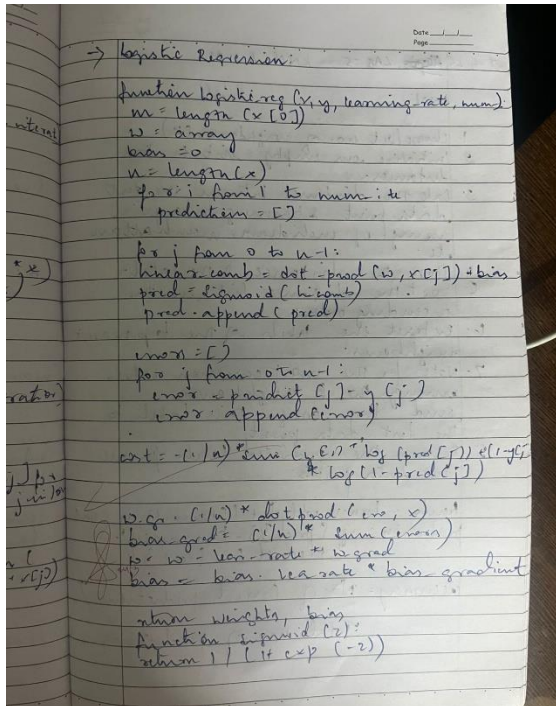 Date
Page
→ Logistic Regression:
function logistic reg (x, y, learning-rate, num):
m = length (x [0])
w = array
bias = 0
n = length (x)
for i from 1 to num-ite
prediction = []
for j from 0 to n-1:
linear-comb = dot-prod (w, x[j]) + bias
pred = sigmoid (licomb)
pred. append (pred)
errors = []
for j from 0 to n-1:
error = predict [j] - y [j]
error. append (error)
cost = -(1/n) * sum * log (pred [j])
* log (1 - pred [j])
(1/n) * dot prod (x)
bias grad = (1/n) * sum (errors)
w = w - lear-rate * w grad
bias = bias - lea rate * bias-gradient
return weights, bias
function sigmoid (z):
return 1 / (1 + exp (-z))
ration)
+ x[j])